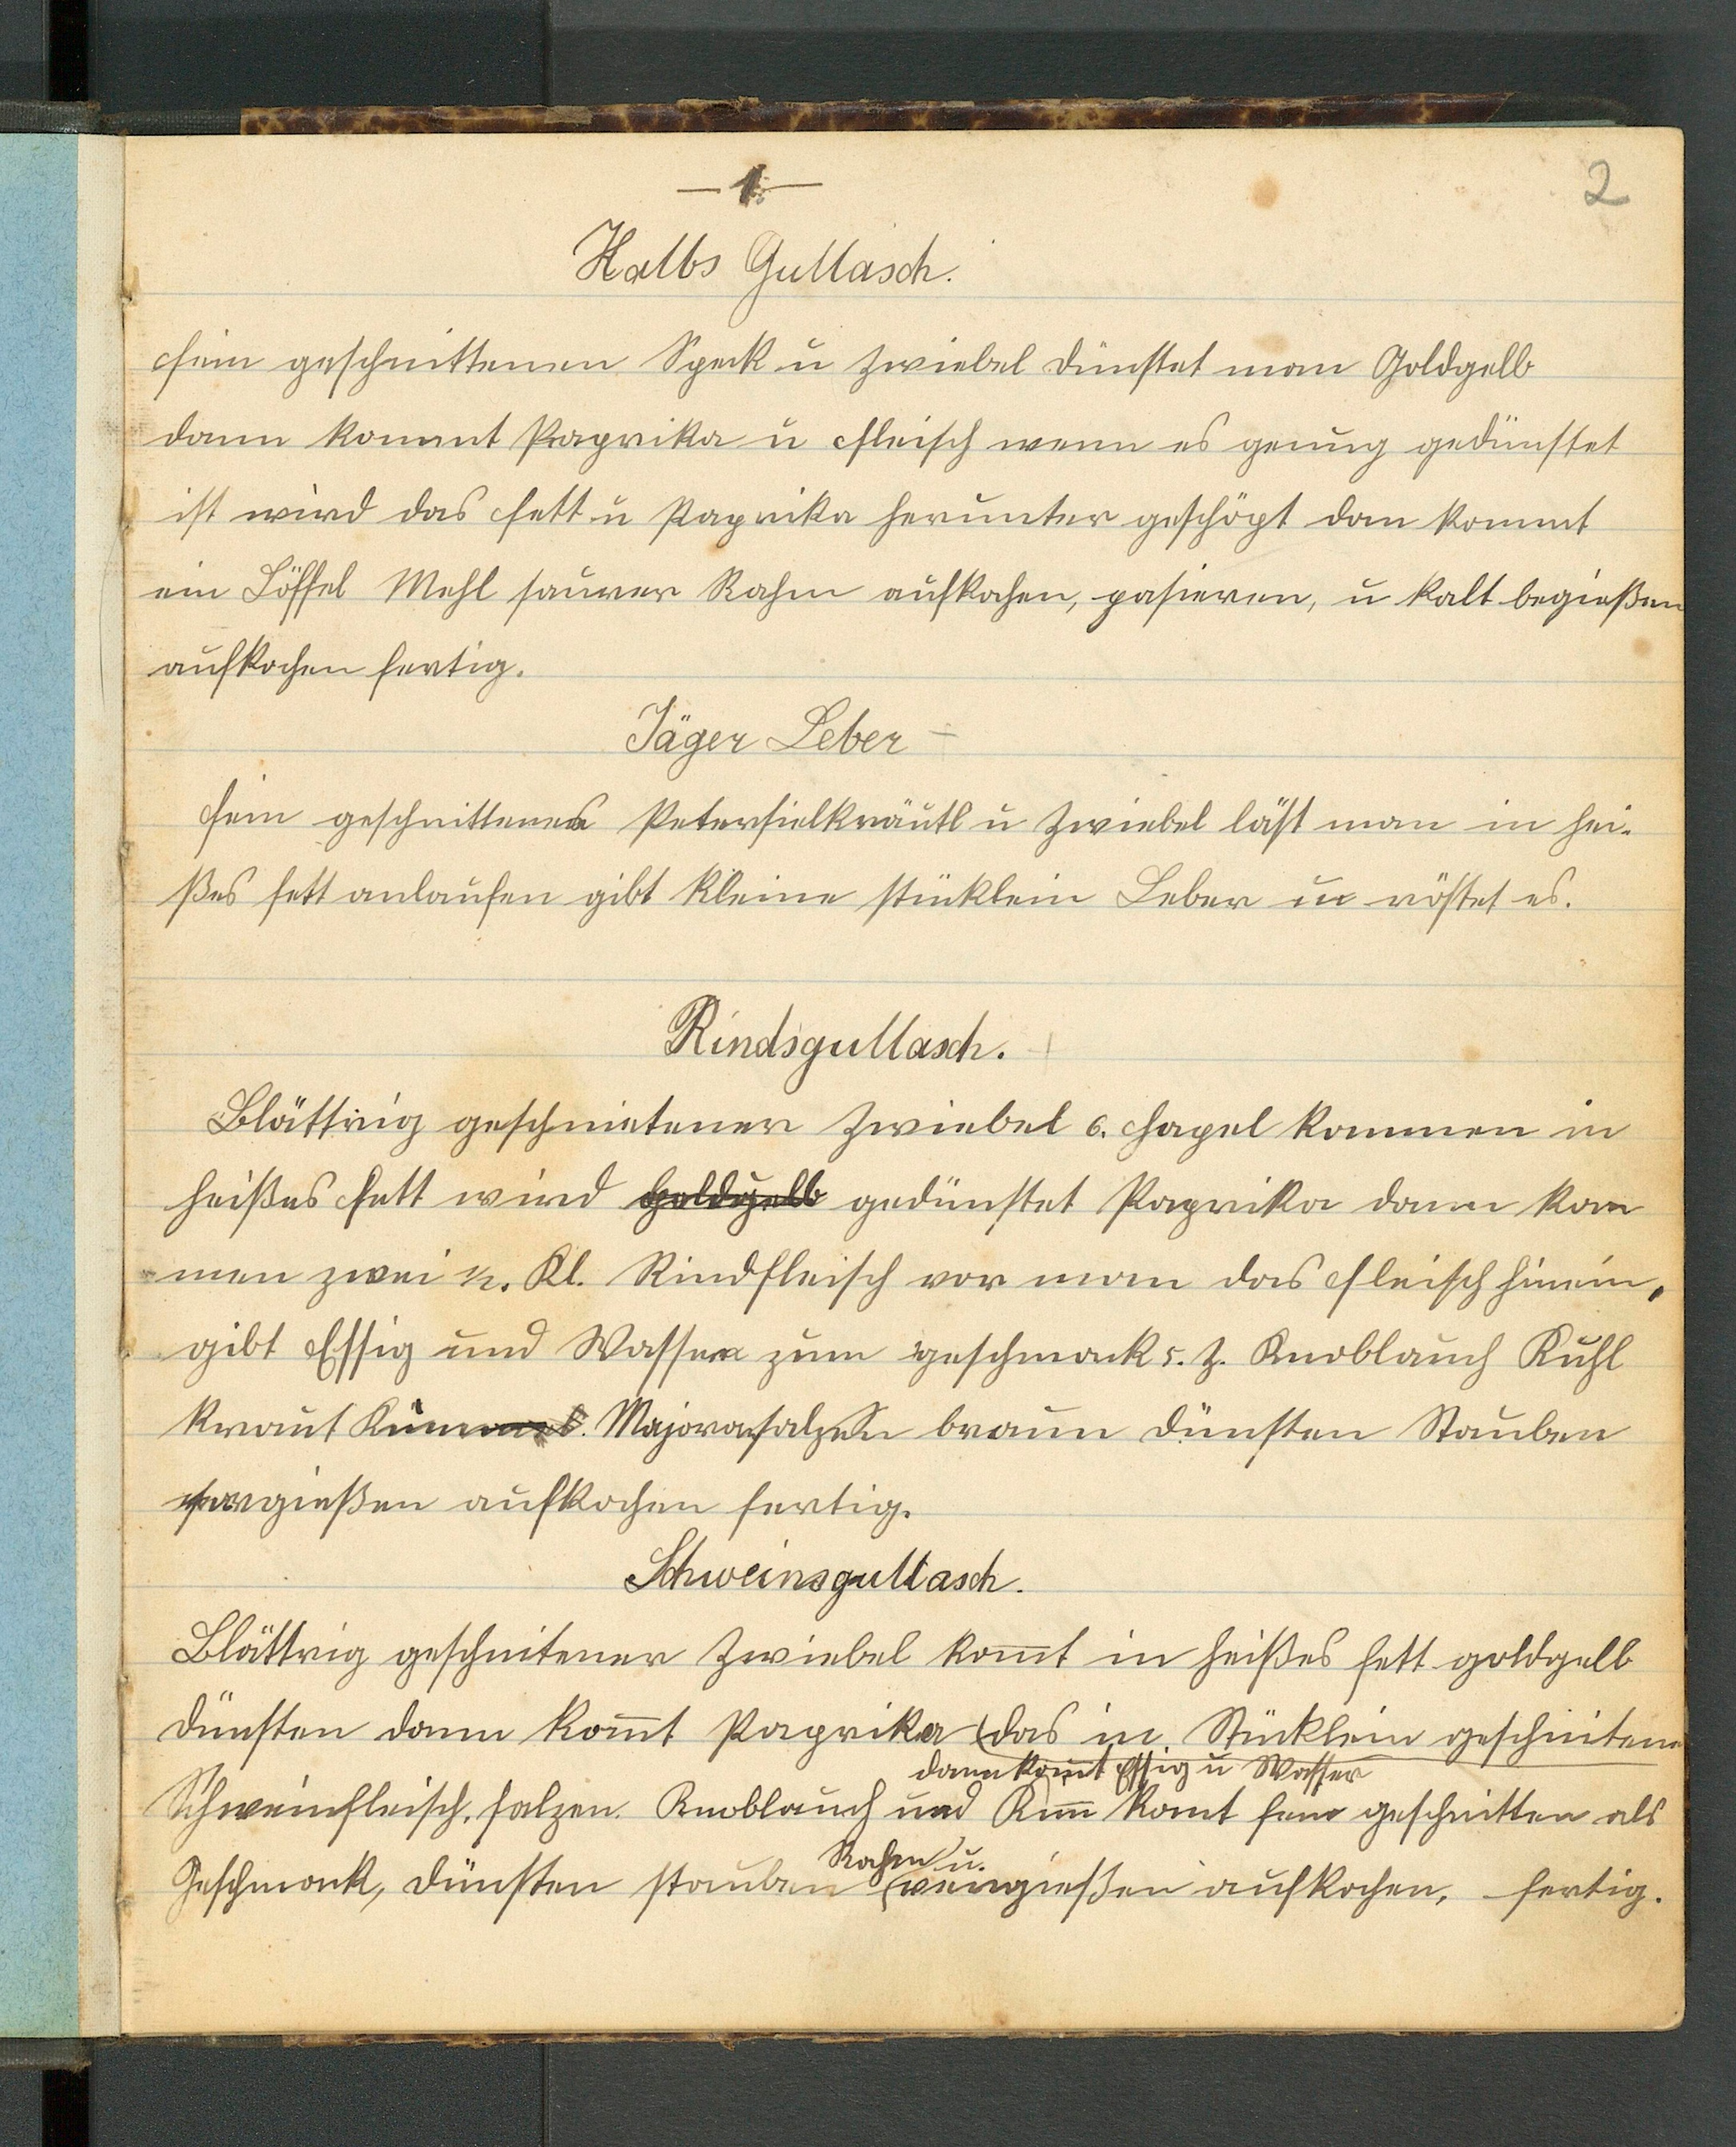 — 1 —
2
Kalbs Gullasch.
Fein geschnittenen Speck u Zwiebel dünstet man Goldgelb
dann kommt Paprika u Fleisch wenn es genug gedünstet
ist wird das Fett u Paprika herunter geschöpt dan kommt
ein Löffel Mehl saurer Rahm aufkochen, pasieren, u kalt begießen
aufkochen fertig.
Jäger Leber
Fein geschnittenes Petersielkräutl u Zwiebel läst man in hei-
ßes fett anlaufen gibt kleine stücklein Leber u röstet es.
Rindsgullasch.
Blättrig geschnietener Zwiebel 6. Hapel kommen in
heißes Fett wird Goldgelb gedünstet Paprika dann kom
men zwei ½. Kl. Rindfleisch vor man das Fleisch hinein,
gibt Essig und Wasser zum geschmack 5. Z. Knoblauch Kuhl
kraut Majoran salzen braun dünsten Stauben
vergießen aufkochen fertig.
Schweinsgullasch.
Blättrig geschnitener Zwiebel kom̅t in heißes fett goldgelb
dünsten dann kom̅t Paprika (das in Stücklein geschnitene
dann kom̅t Essig u Wasser
Schweinfleisch, salzen. Knoblauch und Kim̅ komt fein geschnitten als
Rahm u.
Geschmack, dünsten stauben (vergießen aufkochen, fertig.